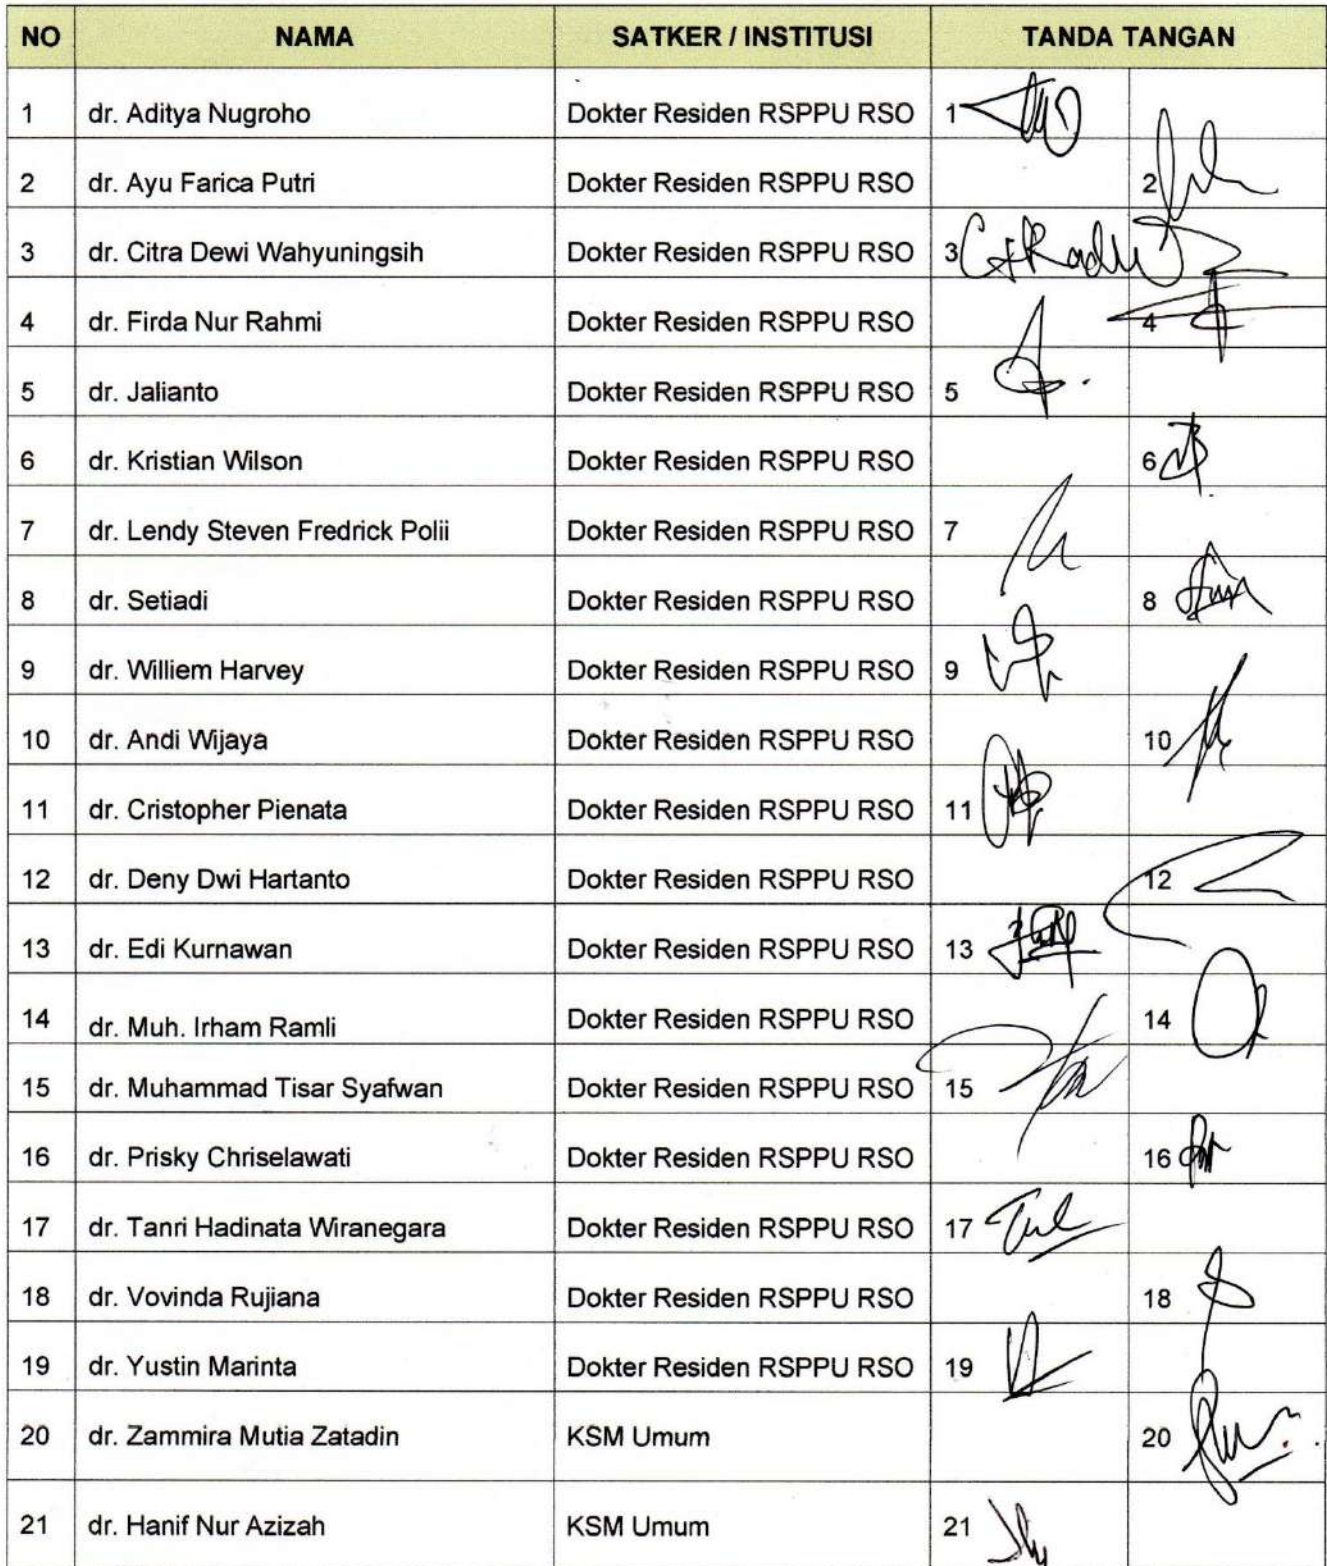 NO NAMA SATKER / INSTITUSI TANDA TANGAN
1 dr. Aditya Nugroho Dokter Residen RSPPU RSO 1
2 dr. Ayu Farica Putri Dokter Residen RSPPU RSO 2
3 dr. Citra Dewi Wahyuningsih Dokter Residen RSPPU RSO 3
4 dr. Firda Nur Rahmi Dokter Residen RSPPU RSO 4
5 dr. Jalianto Dokter Residen RSPPU RSO 5
6 dr. Kristian Wilson Dokter Residen RSPPU RSO 6
7 dr. Lendy Steven Fredrick Polii Dokter Residen RSPPU RSO 7
8 dr. Setiadi Dokter Residen RSPPU RSO 8
9 dr. Williem Harvey Dokter Residen RSPPU RSO 9
10 dr. Andi Wijaya Dokter Residen RSPPU RSO 10
11 dr. Cristopher Pienata Dokter Residen RSPPU RSO 11
12 dr. Deny Dwi Hartanto Dokter Residen RSPPU RSO 12
13 dr. Edi Kurnawan Dokter Residen RSPPU RSO 13
14 dr. Muh. Irham Ramli Dokter Residen RSPPU RSO 14
15 dr. Muhammad Tisar Syafwan Dokter Residen RSPPU RSO 15
16 dr. Prisky Chriselawati Dokter Residen RSPPU RSO 16
17 dr. Tanri Hadinata Wiranegara Dokter Residen RSPPU RSO 17
18 dr. Vovinda Rujiana Dokter Residen RSPPU RSO 18
19 dr. Yustin Marinta Dokter Residen RSPPU RSO 19
20 dr. Zammira Mutia Zatadin KSM Umum 20
21 dr. Hanif Nur Azizah KSM Umum 21